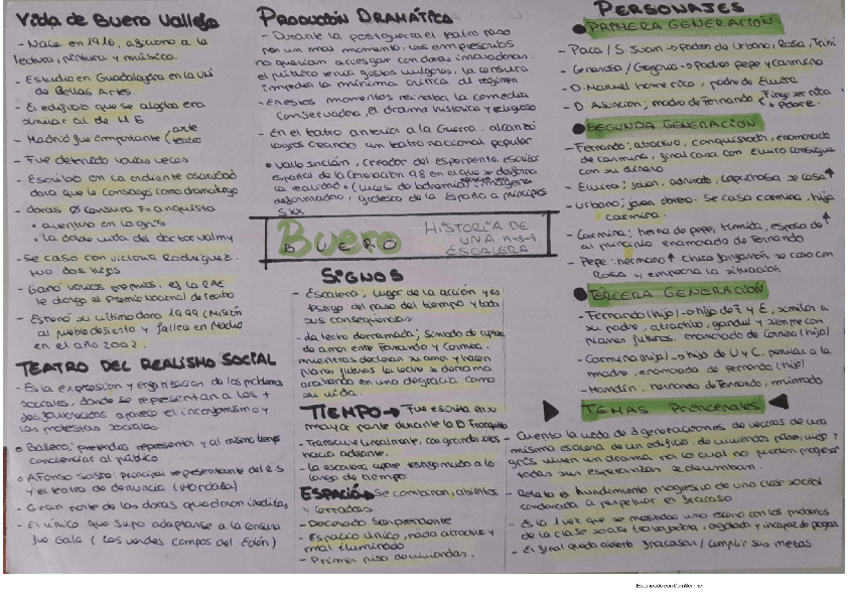 Vida de Buero Vallejo
- Nace en 1916, aficiono a la
lectura, pintura y música.
- Estudio en Guadalajara en la Uni
de Bellas Artes.
- El edificio que se alojaba era
similar al de H E
- Madrid fue importante (arte
teatro
- Fue detenido varias veces
- Escribio En la ardiente oscuridad
obra que le consagó como dramaturgo
- obras Ø censura Franquista
• aventura en lo gris
• la doble vida del doctor valmy
- Se caso con victoria Rodriguez.
tuvo dos hijos
- Ganó varios premios, es la RAE
le otorgo el Premio Nacional de teatro
- Estrenó su última obra 1999 (Misión
al pueblo desierto y fallece en Madrid
en el año 2002.
TEATRO DEL REALISMO SOCIAL
- Es la expresion y organizacion de los problemas
sociales, donde se representan a los +
desfavorecidos aparece el inconformismo y
las protestas sociales.
• Ballero; pretendia representar y al mismo tiempo
concienciar al público
• Alfonso Sastre: principal representante del R.S
y el teatro de denuncia (Mordaza)
- Gran parte de las obras quedaron ineditas,
- El único que supo adaptarse a la censura
fue Gala (Los verdes campos del Edén)
PRODUCCIÓN DRAMÁTICA
- Durante la postguerra el teatro paso
por un mal momento. Los empresarios
no querian arriesgar con obras innovadoras.
el público tenia gustos vulgares, la censura
impedia la mínima critica al regimen
- En estos momentos reinaba la comedia
conservadora, el drama historico y religioso
- En el teatro anterior a la Guerra. alcanzó
logros creando un teatro nacional popular
• Valle Inclán, creador del esperpento, escritor
español de la Generación 98 en el que se deforma
la realidad • (Luces de bohemia) imágenes
deformadas, grotesca de la España a principios
S XX
Buero
BUERO
HISTORIA DE
UNA 1948-9
ESCALERA
SIGNOS
- Escalera; lugar de la acción y es
testigo del paso del tiempo y toda
sus consecuencias
- La leche derramada;
de amor entre Fernando y Carmina.
mientras declaran su amor y hacen
planes futuros la leche se derrama
acabando en una desgracia como
su vida.
TIEMPO → Fue escrita en su
mayor parte durante la D Franquista
- Transcurre linealmente, con grandes
hacia adelante.
- La escalera testigo mudo a lo
largo de tiempo.
ESPACIO → Se combinan, abiertos
y cerrados
- Decorado sorprendente
- Espacio único, nada atractivo y
mal iluminado
- Primer piso de viviendas.
PERSONAJES
• PRIMERA GENERACIÓN
- Paca / S. Juan → Padres de Urbano, Rosa, Trini
- Generosa / Gregorio → Padres pepe y carmina
- D. Manuel homre rico, padre de Elvira
- D Asuncion; madre de Fernando (Finge ser rica
+ Pobre.
• SEGUNDA GENERACIÓN
- Fernando; atractivo, conquistador, enamorado
de Carmina, final casa con Elvira consigue
con su dinero
- Elvira; joven, adinerada, caprichosa se casa ↑
- Urbano; joven obrero. Se casa carmina, hija
carmina.
- Carmina; herma de pepe, timida, esposa de ↑
al principio enamorada de Fernando
- Pepe: hermano ↑ chico se caso con
Rosa y empeora la situación
• TERCERA GENERACIÓN
- Fernando (hijo) → hijo de F y E, similar a
su padre, atractivo, gandul y siempre con
planes futuros. enamorado de Carmina (hija)
- Carmina (hija) → hija de U y C. parecida a la
madre, enamorada de fernando (hijo)
- Manolín; hermano de Fernando, mimado
TEMAS Principales
- Cuenta la vida de 3 generaciones de vecinos de una
misma escalera de un edificio. de viviendas pobre, viejo y
gris viven un drama no lo cual no pueden progresar
todas sus esperanzas se derrumban.
- Relata el hundimiento progresivo de una clase social
condenada a perpetuar el fracaso
- Es la 1 vez que se mostraba una escena con los problemas
de la clase social trabajadora, agobiada y incapaz de pagar
- El final queda abierto fracasar / cumplir sus metas
Escaneado con CamScanner